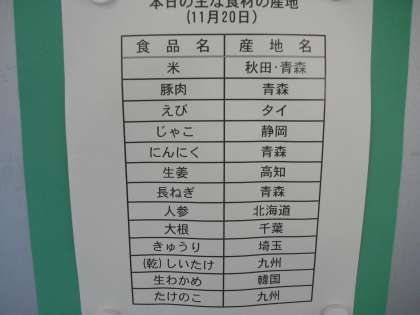 本日の主な食材の産地
(11月20日)
食品名 産地名
米 秋田・青森
豚肉 青森
えび タイ
じゃこ 静岡
にんにく 青森
生姜 高知
長ねぎ 青森
人参 北海道
大根 千葉
きゅうり 埼玉
(乾)しいたけ 九州
生わかめ 韓国
たけのこ 九州